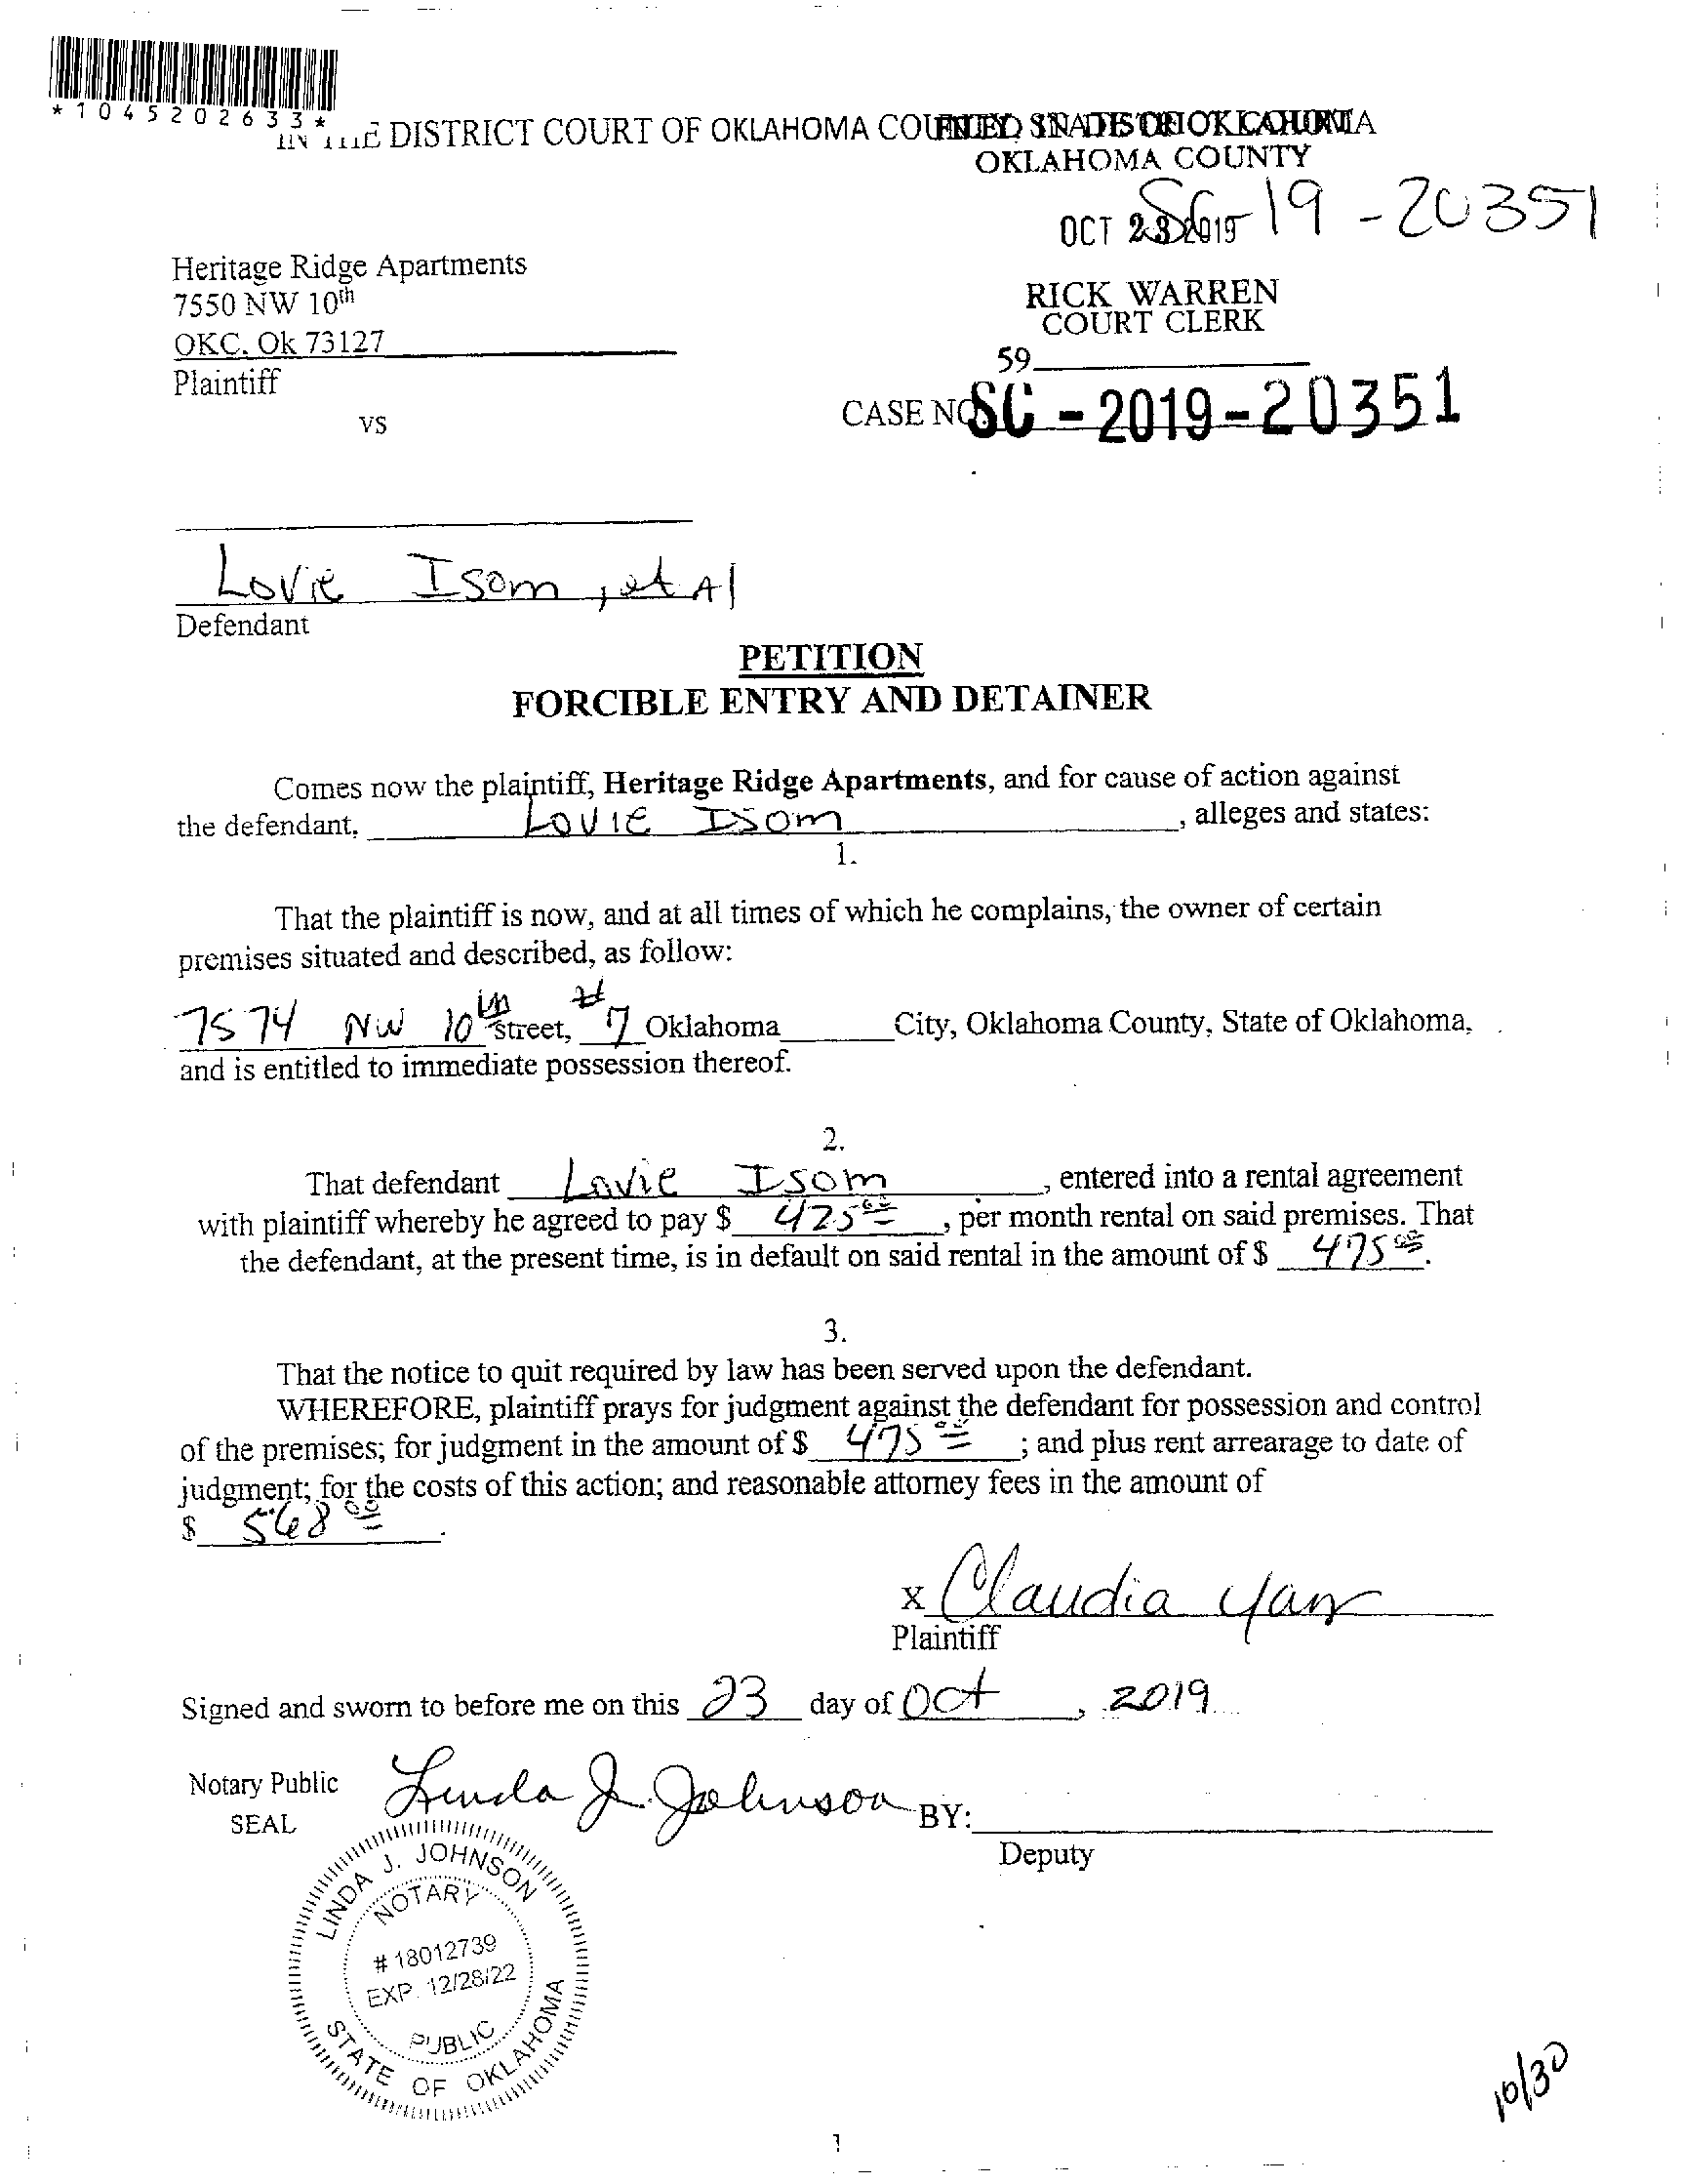 *1045202633*
IN THE DISTRICT COURT OF OKLAHOMA COUNTY, STATE OF OKLAHOMA
FILED IN DISTRICT COURT
OKLAHOMA COUNTY
SC-19-20351
OCT 23 2019
Heritage Ridge Apartments
7550 NW 10th
OKC. Ok 73127
Plaintiff
RICK WARREN
COURT CLERK
59
CASE NO. SC-2019-20351
VS
Lovie Isom, et Al
Defendant
PETITION
FORCIBLE ENTRY AND DETAINER
Comes now the plaintiff, Heritage Ridge Apartments, and for cause of action against
the defendant, Lovie Isom, alleges and states:
1.
That the plaintiff is now, and at all times of which he complains, the owner of certain
premises situated and described, as follow:
7574 NW 10th street, #7 Oklahoma City, Oklahoma County, State of Oklahoma,
and is entitled to immediate possession thereof.
2.
That defendant Lovie Isom, entered into a rental agreement
with plaintiff whereby he agreed to pay $ 475 00, per month rental on said premises. That
the defendant, at the present time, is in default on said rental in the amount of $ 475 00.
3.
That the notice to quit required by law has been served upon the defendant.
WHEREFORE, plaintiff prays for judgment against the defendant for possession and control
of the premises; for judgment in the amount of $ 475 00; and plus rent arrearage to date of
judgment; for the costs of this action; and reasonable attorney fees in the amount of
$ 568 00.
x Claudia
Plaintiff
Signed and sworn to before me on this 23 day of Oct, 2019
Notary Public Linda J. Johnson
SEAL
BY:
Deputy
LINDA J. JOHNSON
NOTARY
# 18012739
EXP. 12/28/22
PUBLIC
STATE OF OKLAHOMA
10/30
1